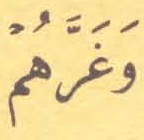 وَغَرَّهُمْ